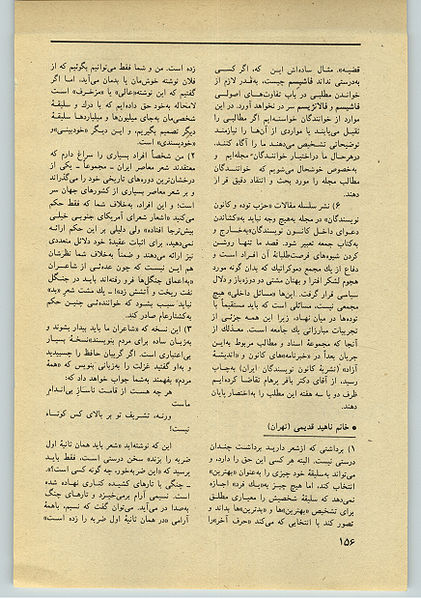 قضیه». مثال ساده‌اش این که، اگر کسی
به‌درستی نداند فاشیسم چیست، به‌قدر لازم از
خواندن مطلبی در باب تفاوت‌های اصولی
فاشیسم و فالانژیسم سر در نخواهد آورد. در این
موارد از خوانندگان خواسته‌ایم اگر مطالبی را
ثقیل می‌یابند یا مواردی از آن‌ها را نیازمند
توضیحاتی تشخیص می‌دهند ما را آگاه کنند.
درهرحال ما دراختیار خوانندگان مجله‌ایم و
به‌خصوص خوشحال می‌شویم که خوانندگان
مطالب مجله را مورد بحث و انتقاد دقیق قرار
دهند.
۶) نشر سلسله مقالات «حزب توده و کانون
نویسندگان» در مجله به‌هیچ وجه نباید به‌کشاندن
دعوای داخل کانون نویسندگان «به‌خارج و
به‌کتاب جمعه تعبیر شود. قصد ما تنها روشن
کردن شیوه‌های فرصت‌طلبانهٔ آن افراد است و
دفاع از یک مجمع دموکراتیک که بدان گونه مورد
هجوم لشکر افترا و بهتان مشتی دو دوزه‌باز و دلال
سیاسی قرار گرفت. این‌ها «مسائل داخلی» هیچ
مجمعی نیست. مسائلی است که باید مستقیماً با
توده‌ها در میان نهاد، زیرا این همه جزئی از
تجربیات مبارزاتی یک جامعه است. معذلک از
آنجا که مجموعهٔ اسناد و مطالب مربوط به‌این
جریان بعداً در «خبرنامه»های کانون و «اندیشهٔ
آزاد» (نشریهٔ کانون نویسندگان ایران) به‌چاپ
رسید، از آقای دکتر باقر پرهام تقاضا کرده‌ایم
ظرف دو یا سه هفته این مطلب را به‌اختصار پایان
دهند.
• خانم ناهید قدیمی (تهران)
۱) برداشتی که ازشعر دارید برداشت چندان
درستی نیست. البته هر کسی این حق را دارد، و
می‌تواند به‌سلیقهٔ خود چیزی را به‌عنوان «بهترین»
انتخاب کند، اما هیچ چیز به‌«یک فرد» اجازه
نمی‌دهد که سلیقهٔ شخصیش را معیاری مطلق
برای تشخیص «بهترین»ها و «بدترین»ها بداند و
تصور کند با انتخابی که می‌کند «حرف آخر» را
زده است. من و شما فقط می‌توانیم بگوئیم که از
فلان نوشته خوش‌مان یا بدمان می‌آید، اما اگر
گفتیم که این نوشته «عالی» یا «مزخرف» است
لامحاله به‌خود حق داده‌ایم که با درک و سلیقهٔ
شخصی‌مان به‌جای میلیون‌ها و میلیاردها سلیقهٔ
دیگر تصمیم بگیریم، و این دیگر «خودبینی» و
«خودپسندی» است.
۲) من شخصاً افراد بسیاری را سراغ دارم که
معتقدند شعر معاصر ایران ـ مجموعاً ـ یکی از
درخشان‌ترین دوره‌های تاریخی خود را می‌گذراند
و بر شعر معاصر بسیاری از کشورهای جهان سر
است؛ و این افراد، به‌خلاف شما که فقط حکم
می‌کنید «اشعار شعرای آمریکای جنوبی خیلی
بیش‌ترجا افتاده» ولی دلیلی بر این حکم ارائه
نمی‌دهید، برای اثبات عقیدهٔ خود دلائل متعددی
نیز ارائه می‌دهند و ضمناً به‌خلاف شما نظرشان
هم این نیست که چون عده‌ئی از شاعران
«به‌اعمای جنگل‌ها فرو رفته‌اند باید در جنگل
نفت ریخت و آتشش زد» ـ یک مشت شعر «بد»
نباید سبب بشود که خواننده‌ئی چنین حکم
به‌کشتارعام صادر کند.
۳) این نسخه که «شاعران ما باید بیدار بشوند و
به‌زبان ساده برای مردم بنویسند» نسخهٔ بسیار
بی‌اعتباری است. اگر گریبان حافظ را چسبیدید
و به‌او گفتید غزلت را به‌زبانی بنویس که «همهٔ
مردم» بفهمند به‌شما جواب خواهد داد که:
هر چه هست از قامت ناساز بی‌اندام
ماست
ورنه، تشریف تو بر بالای کس کوتاه
نیست!
این که نوشته‌اید «شعر باید همان ثانیهٔ اول
ضربه را بزند» سخن درستی است، فقط باید
پرسید که «این ضربه‌خور، چه گونه کسی است؟».
ـ چنگی با تارهای کشیده کناری نهاده شده
است. نسیمی آرام برمی‌خیزد و تارهای چنگ
به‌صدا در می‌آید. می‌توان گفت که نسیم، باهمهٔ
آرامی «در همان ثانیهٔ اول ضربه را زده است.»
۱۵۶